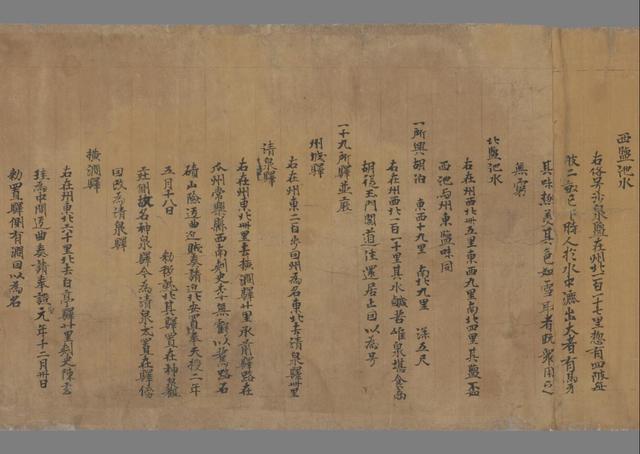 西鹽池水
右俗号沙泉鹽在州北一百一十七里惣有四陂每
陂二畝已下時人於水中漉出大者有馬牙
其味極美其色如雪取者既衆用之
無窮
北鹽池水
右在州西北卌五里東西九里南北四里其鹽不如
西池与州東鹽味同
一所興胡泊 東西十九里 南北九里 深五尺
右在州西北一百一十里其水鹹苦唯泉堪食商
胡從玉門關道往還居止因以為号
一十九所驛並廢
州城驛
右在州東二百步因州為名東北去清泉驛卌里
清泉驛
右在州東北卌里去橫澗驛廿里承前驛路在
瓜州常樂縣西南刺史李無虧以舊路石
磧山險迂曲近賊奏請近北安置奉天授二年
五月十八日 勅移就北其驛置在神泉觀
莊側故名神泉驛今為清泉戍置在驛傍
因改為清泉驛
橫澗驛
右在州東北六十里北去白亭驛廿里刺史陳玄
珪為中間迂曲奏請奉證元年十二月卅日
勅置驛側有澗因以為名